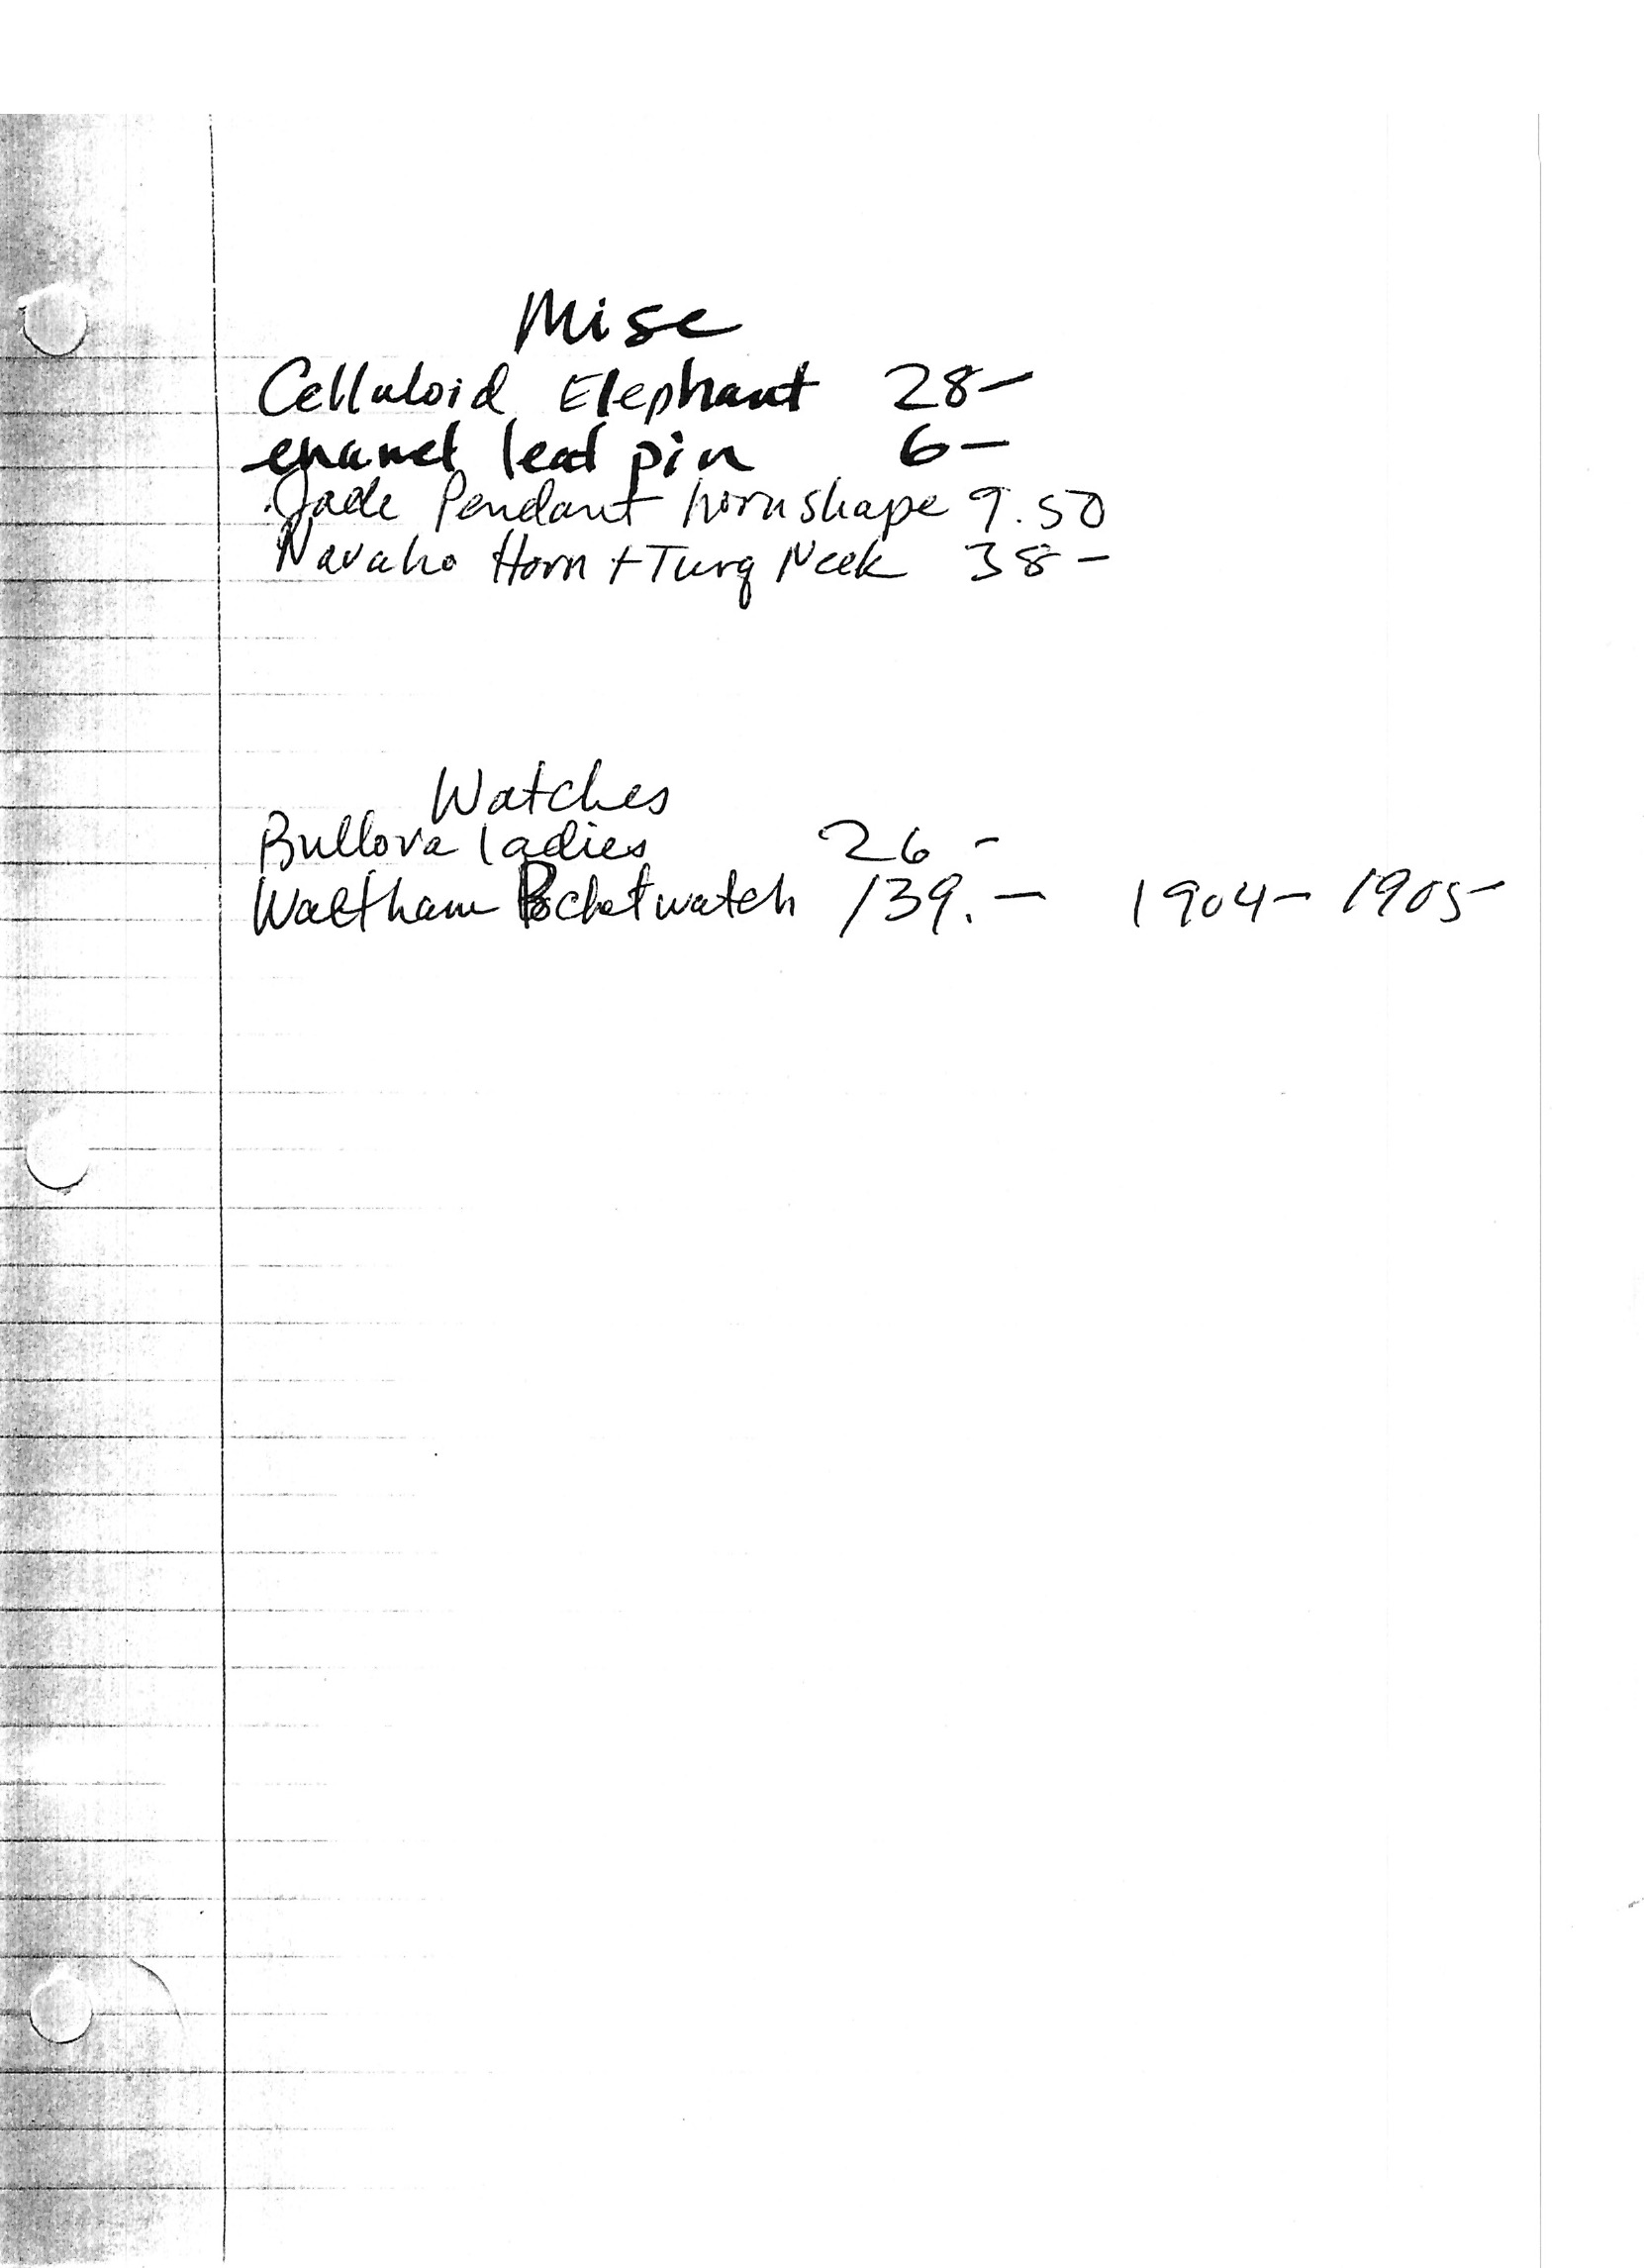 Misc
Celluloid Elephant 28-
enamel leaf pin 6-
Jade Pendant horn shape 9.50
Navaho Horn + Turq Neck 38-
Watches
Bullova ladies 26-
Waltham Pocketwatch 139.- 1904-1905